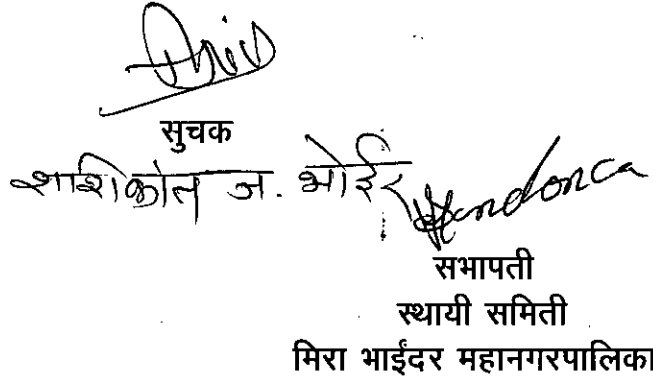 सुचक
शशिकांत ज. भोईर
Mendonca
सभापती
स्थायी समिती
मिरा भाईंदर महानगरपालिका